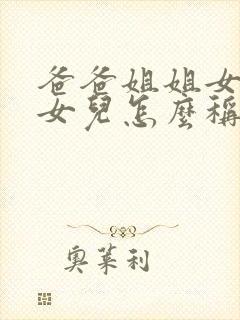 爸爸姐姐女
女兒怎麼稱
奧萊利